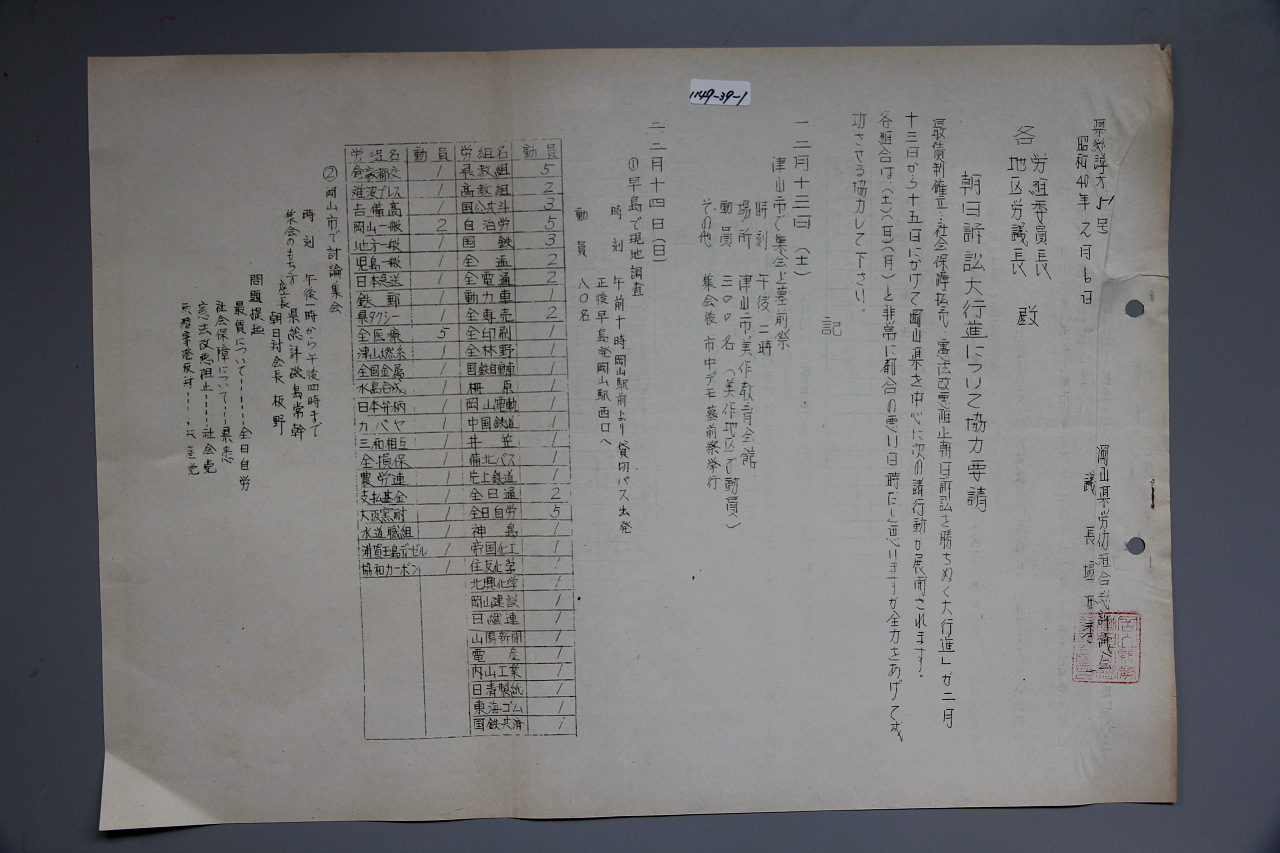 1149-39-1
県総評オ51号
昭和40年2月6日
岡山県労仂組合総評議会
議長
各 労組委員長
地区労議長 殿
朝日訴訟大行進について協力要請
最賃制確立、社会保障拡充、憲法改悪阻止朝日訴訟を勝ちぬく大行進」が二月
十三日から十五日にかけて岡山県を中心に次の諸行動が展開されます。
各組合は、(土)(日)(月)と非常に都合の悪い日時だと思いますが全力をあげて成
功させる協力して下さい。
記
一、二月十三日(土)
津山市で集会と墓前祭
時刻 午後二時
場所 津山市美作教育会館
動員 三〇〇名(美作地区で動員)
その他 集会後市中デモ墓前祭挙行
二、二月十四日(日)
①早島で現地調査
時刻 午前十時岡山駅前より貸切バス出発
正後早島発岡山駅西口へ
動員 八〇名
労組名 動員
県教組 5
高教組 2
国公共斗 3
自治労 5
国鉄 3
全逓 2
全電通 2
動力車 1
全専売 2
全印刷 1
全林野 1
国鉄自動車 1
柵原 1
岡山電軌 1
中国鉄道 1
井笠 1
備北バス 1
片上鉄道 1
全日通 2
全日自労 5
神島 1
帝国化工 1
住友化学 1
北興化学 1
岡山建設 1
日繊連 1
山陽新聞 1
電産 1
内山工業 1
日清製紙 1
東海ゴム 1
国鉄共済 1
労組名 動員
倉敷都交 1
難波プレス 1
吉備高 1
岡山一般 2
地方一般 1
児島一般 1
日本急送 1
鉄郵 1
県タクシー 1
全医療 5
津山燃糸 1
全国金属 1
水島合成 1
日本弁柄 1
カバヤ 1
三和相互 1
全損保 1
農労連 1
支払基金 1
大阪窯耐 1
水道職組 1
浦賀玉島ヂーゼル 1
協和カーボン 1
②岡山市で討論集会
時刻 午後一時から午後四時まで
集会のもち方 座長 県総評 磯島常幹
朝日対会長 板野
問題提起
最賃について------全日自労
社会保障について---県患
憲法改悪阻止------社会党